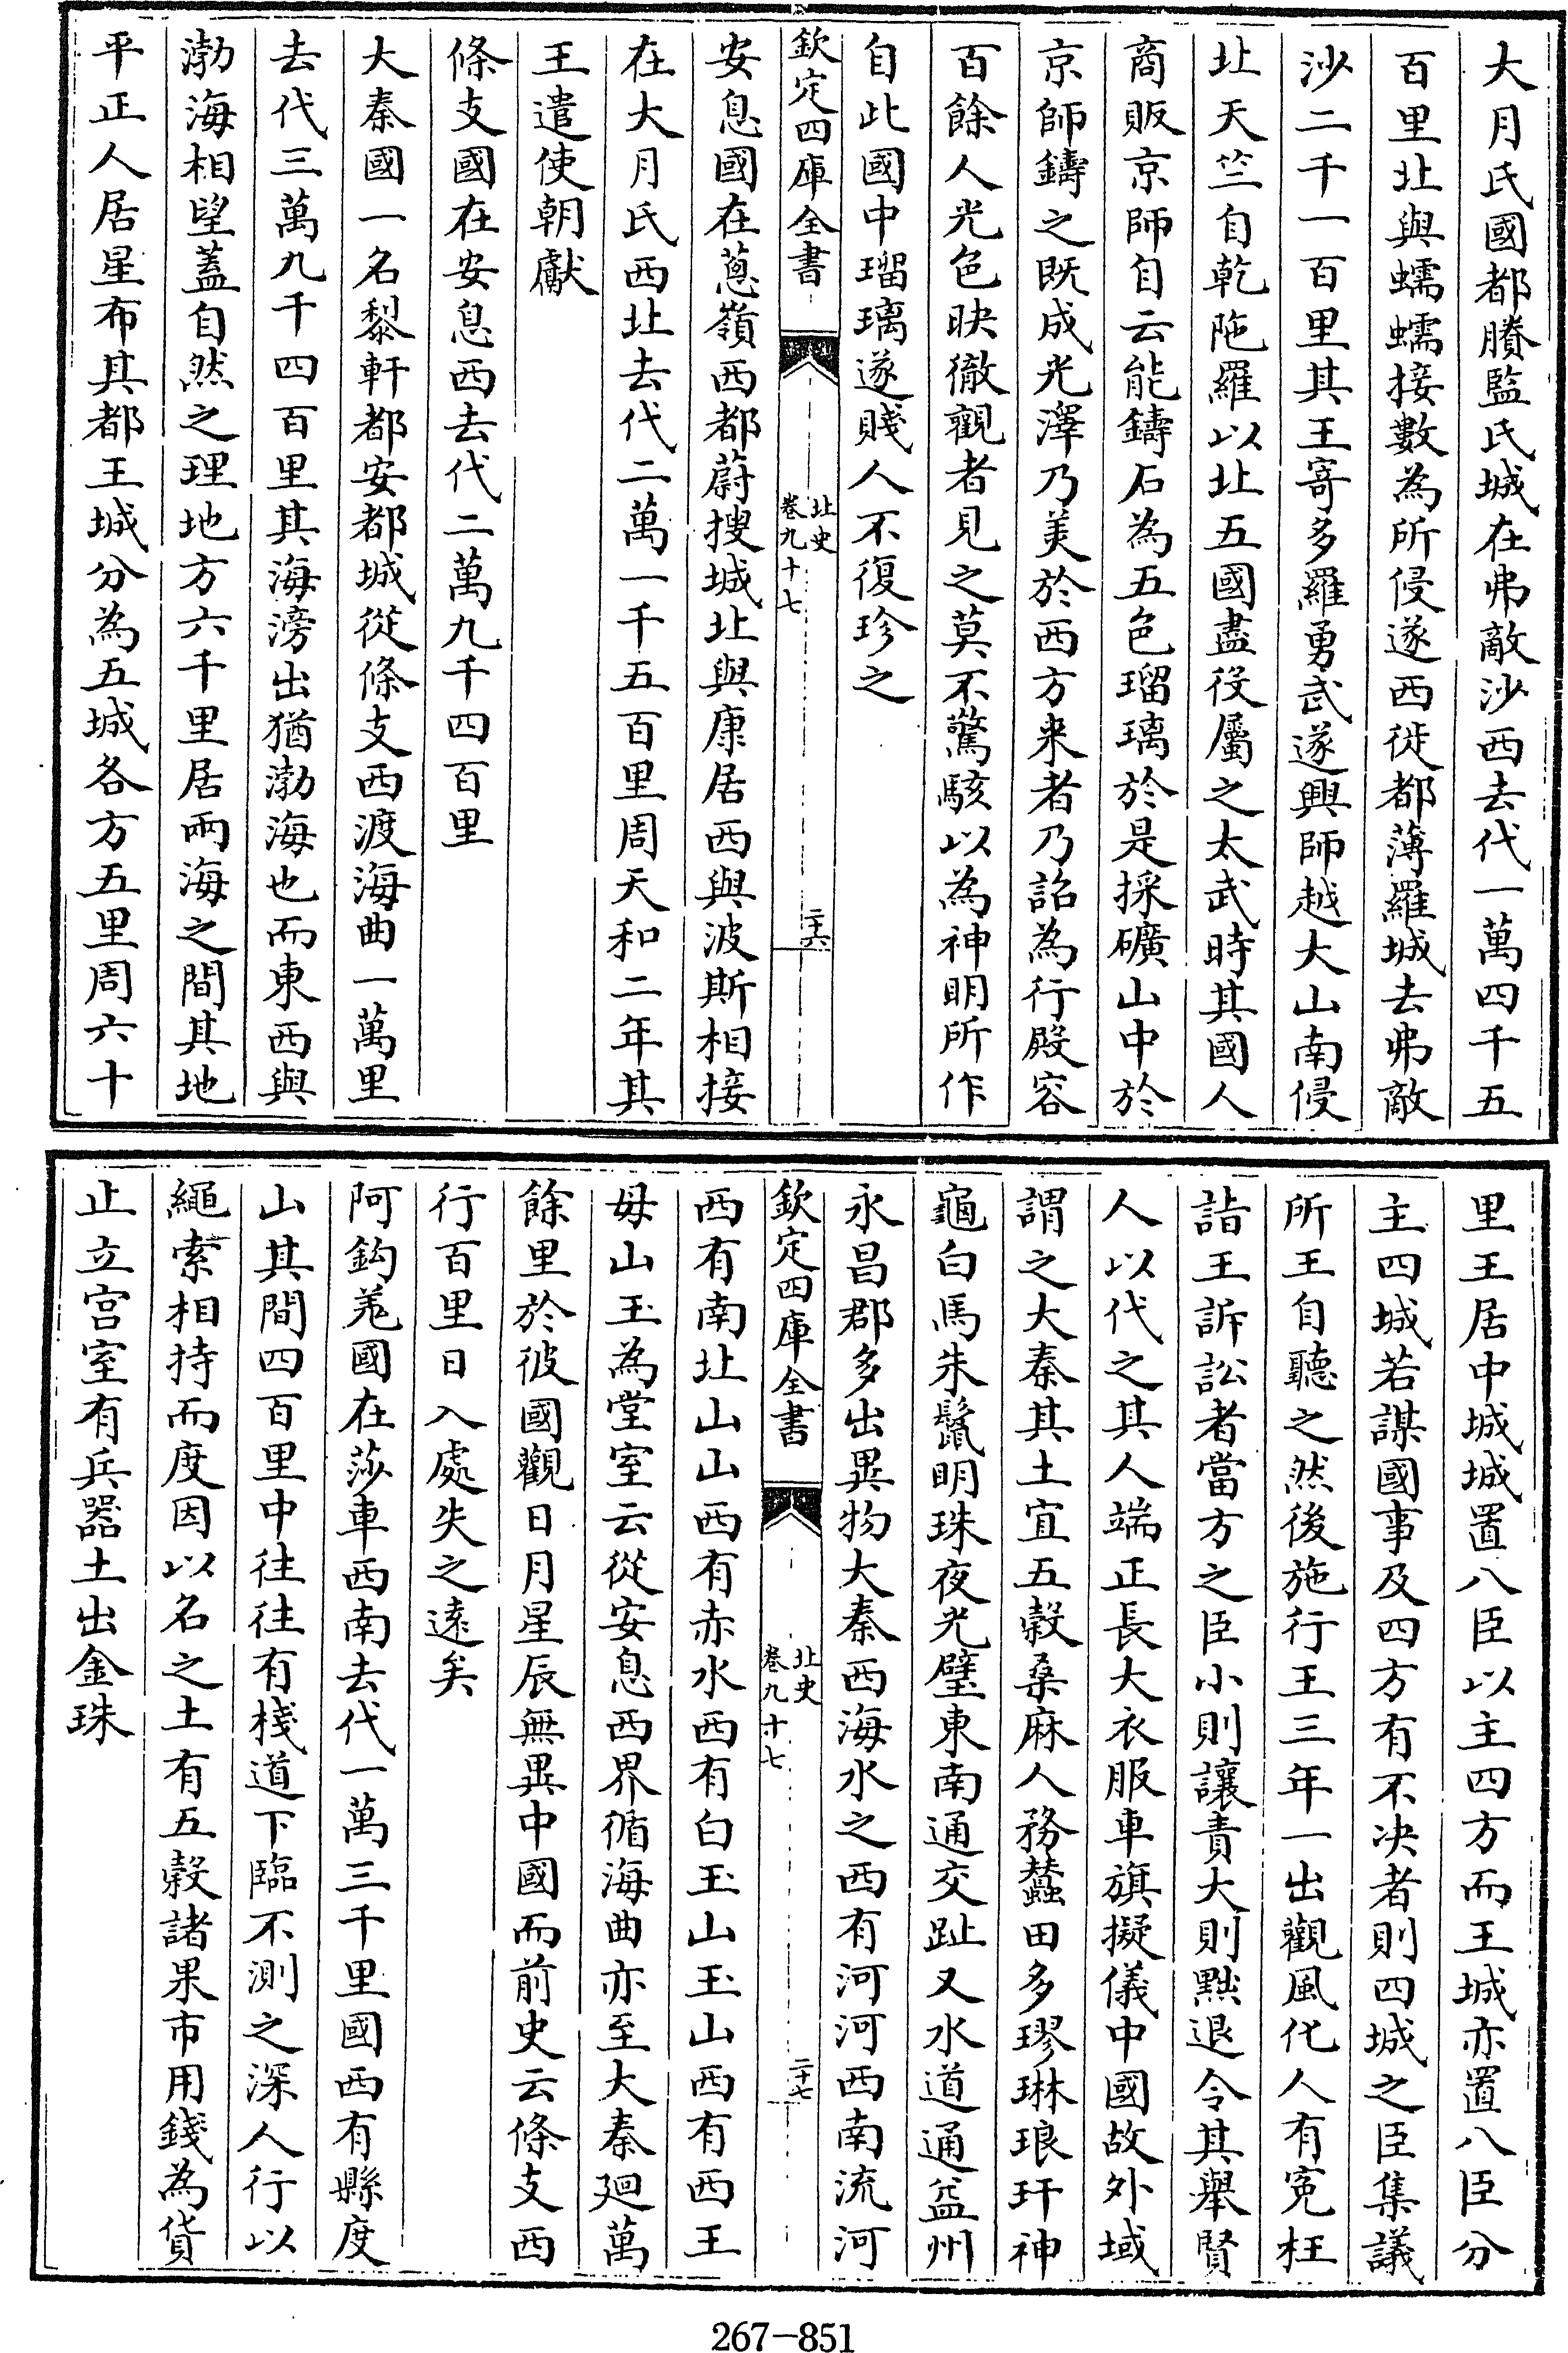 大月氏國都賸監氏城在弗敵沙西去代一萬四千五
百里北與蠕蠕接數為所侵遂西徙都薄羅城去弗敵
沙二千一百里其王寄多羅勇武遂興師越大山南侵
北天竺自乾陁羅以北五國盡役屬之太武時其國人
商販京師自云能鑄石為五色瑠璃於是採礦山中於
京師鑄之既成光澤乃美於西方来者乃詔為行殿容
百餘人光色映徹觀者見之莫不驚駭以為神明所作
自此國中瑠璃遂賤人不復珍之
欽定四庫全書
北史
卷九十七
二十六
安息國在蔥嶺西都蔚搜城北與康居西與波斯相接
在大月氏西北去代二萬一千五百里周天和二年其
王遣使朝獻
條支國在安息西去代二萬九千四百里
大秦國一名黎軒都安都城從條支西渡海曲一萬里
去代三萬九千四百里其海滂出猶渤海也而東西與
渤海相望蓋自然之理地方六千里居兩海之間其地
平正人居星布其都王城分為五城各方五里周六十
里王居中城城置八臣以主四方而王城亦置八臣分
主四城若謀國事及四方有不决者則四城之臣集議
所王自聽之然後施行王三年一出觀風化人有寃枉
詣王訴訟者當方之臣小則讓責大則黜退令其舉賢
人以代之其人端正長大衣服車旗擬儀中國故外域
謂之大秦其土宜五榖桑麻人務蠶田多璆琳琅玕神
龜白馬朱鬣明珠夜光璧東南通交趾又水道通益州
永昌郡多出異物大秦西海水之西有河河西南流河
欽定四庫全書
北史
卷九十七
二十七
西有南北山山西有赤水西有白玉山玉山西有西王
母山玉為堂室云從安息西界循海曲亦至大秦廻萬
餘里於彼國觀日月星辰無異中國而前史云條支西
行百里日入處失之遠矣
阿鈎羌國在莎車西南去代一萬三千里國西有縣度
山其間四百里中往往有棧道下臨不測之深人行以
繩索相持而度因以名之土有五榖諸果市用錢為貨
止立宫室有兵器土出金珠
267-851